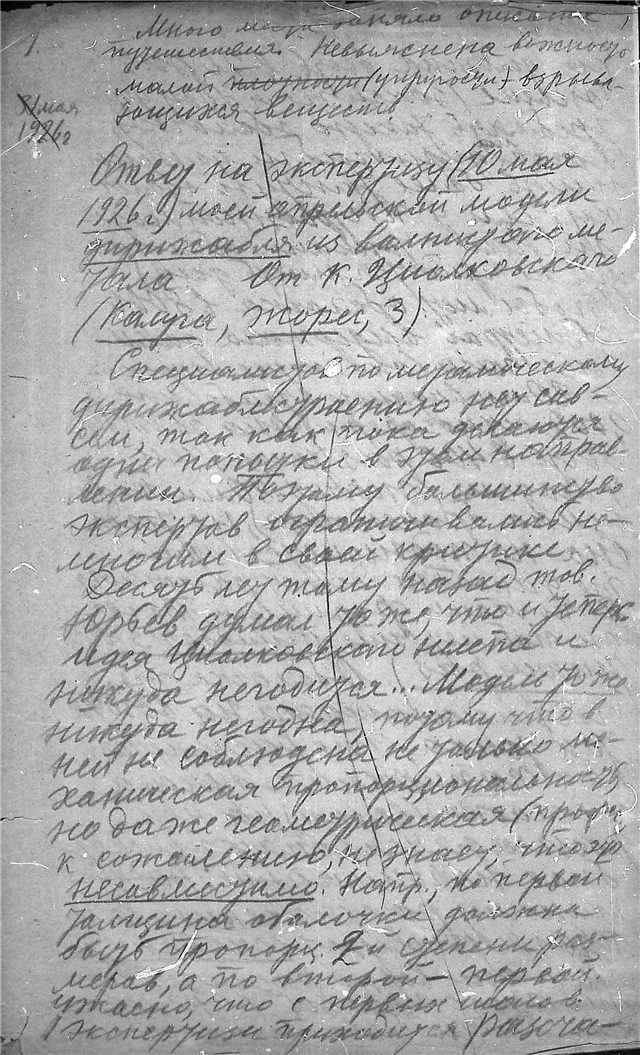 1
Много места заняло описание
путешествия. Невыяснена важность
малой плотности (упругости) взрыва-
ющихся веществ.
XI мая
1926 г
Ответ на экспертизу (10 мая
1926 г.) моей апрельской модели
дирижабля из волнистого ме-
талла От К. Циолковского
(Калуга, Жорес, 3)
Специалистов по металлическому
дирижаблестроению нет сов-
сем, так как пока делаются
одни попытки в этом направ
лении. Поэтому большинство
экспертов ограничивались не-
многим в своей критике.
Десять лет тому назад тов.
Юрьев думал то же, что и теперь
идея Циолковского чиста и
никуда негодится... Модель то же
никуда негодна, потому что в
ней не соблюдена не только ме-
ханическая пропорциональность,
но даже геометрическая (проф.,
к сожалению, незнает, что это
несовместимо. Напр., по первой
толщина оболочки должна
быть пропорц. 2-й степени раз-
меров, а по второй – первой.
Ужасно, что с первых шагов
экспертизы приходится разоча-